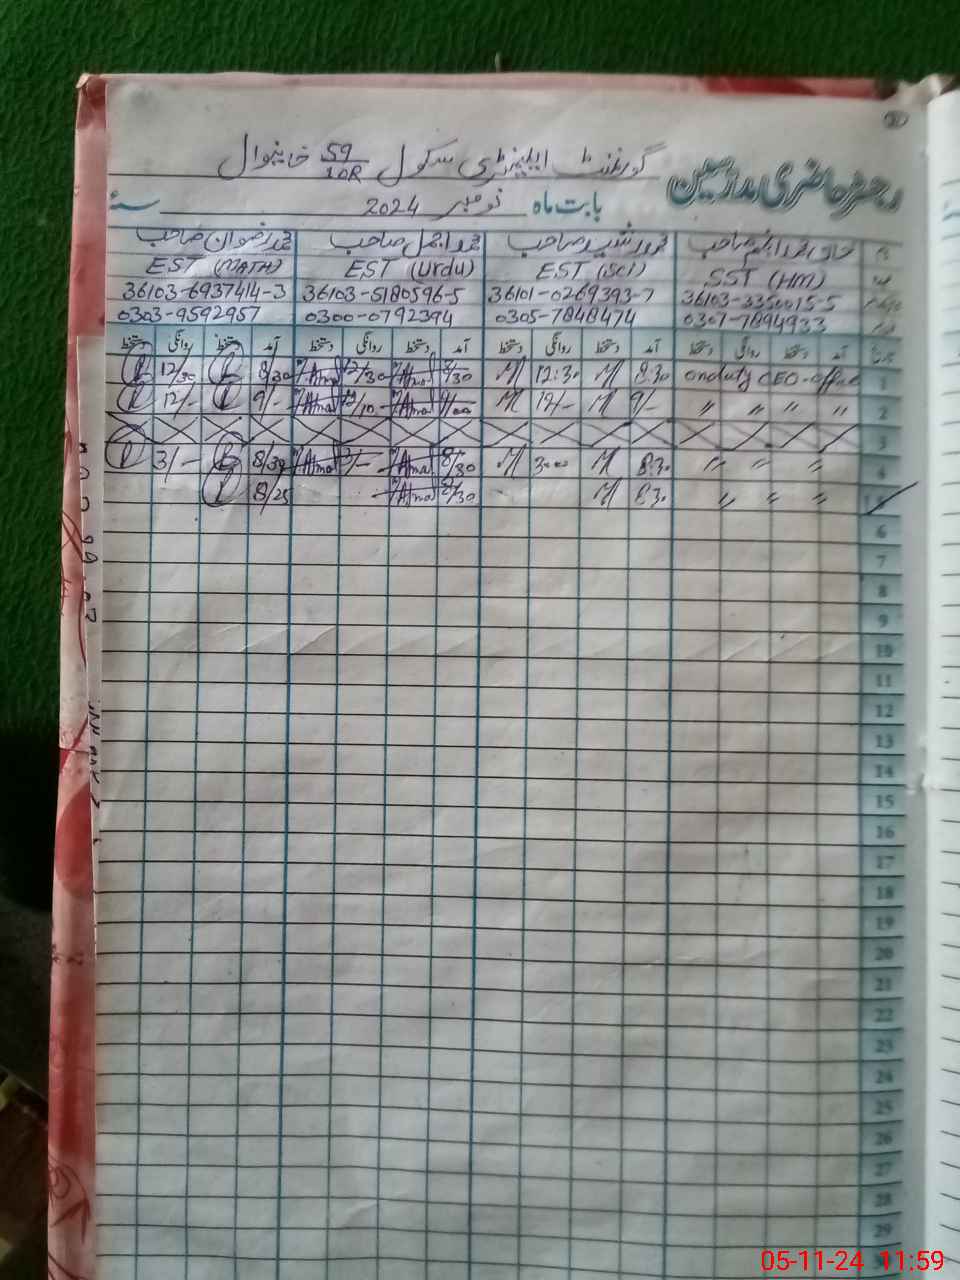 گورنمنٹ ایلیمنٹری سکول 59/10R خانیوال
رجسٹر حاضری مدرسین
بابت ماہ نومبر 2024
محمد اجمل صاحب محمد رضوان صاحب
SST (HM) EST (Sci) EST (Urdu) EST (MATH)
36103-3350015-5 36101-0269393-7 36103-5180596-5 36103-6937414-3
0307-7894933 0305-7848474 0300-0792394 0303-9592957
آمد دستخط روانگی دستخط آمد دستخط روانگی دستخط آمد دستخط روانگی دستخط آمد دستخط روانگی دستخط
1 onduty CEO-office 8:30 M 12:30 M 8/30 Ajmal 12/30 Ajmal 8/30 12/30
2 〃 〃 〃 〃 9/- M 12/- M Ajmal Ajmal 9/- 12/-
3
4 〃 〃 〃 8:30 M 3:00 M 8/30 Ajmal 3/- Ajmal 8/30 3/-
〃 〃 〃 8:30 M 8/30 Ajmal 8/25
6
7
8
9
10
11
12
13
14
15
16
17
18
19
20
21
22
23
24
25
26
27
28
29
05-11-24 11:59